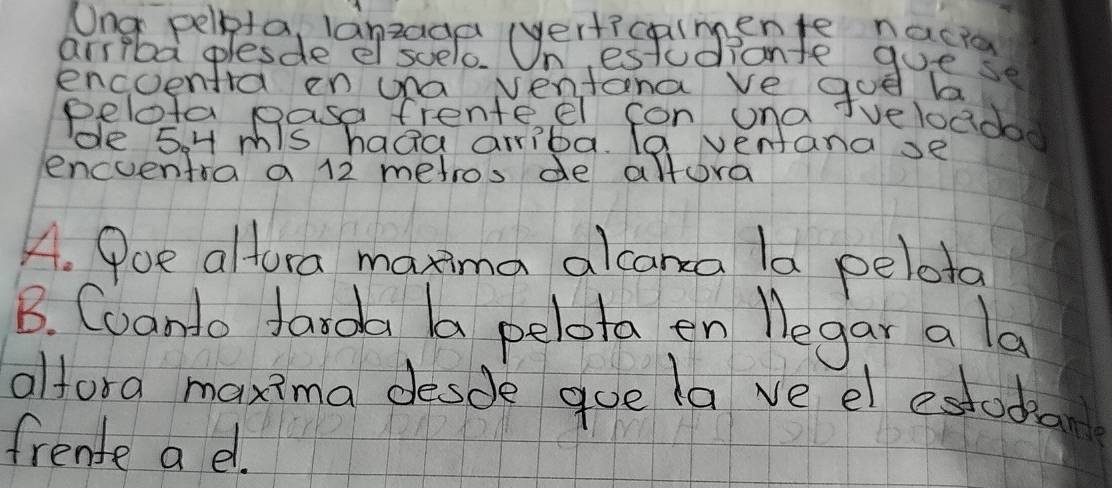 Una pelota, lanzada verticalmente hacia
arriba desde el suelo. Un estudiante que se
encuentra en una ventana ve que la
pelota pasa frente el con una velocidad
de 5,4 m/s hacia arriba. la ventana se
encuentra a 12 metros de altura
A. Que altura maxima alcanza la pelota
B. Cuanto tarda la pelota en llegar a la
altura maxima desde que la ve el estudiante
frente a el.